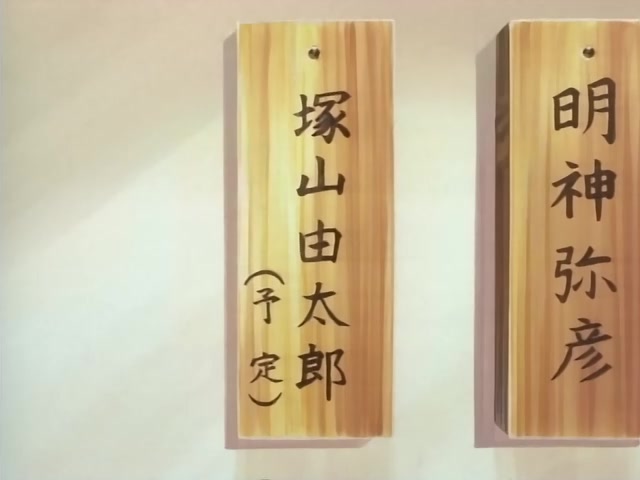 明神弥彦
塚山由太郎
(予定)